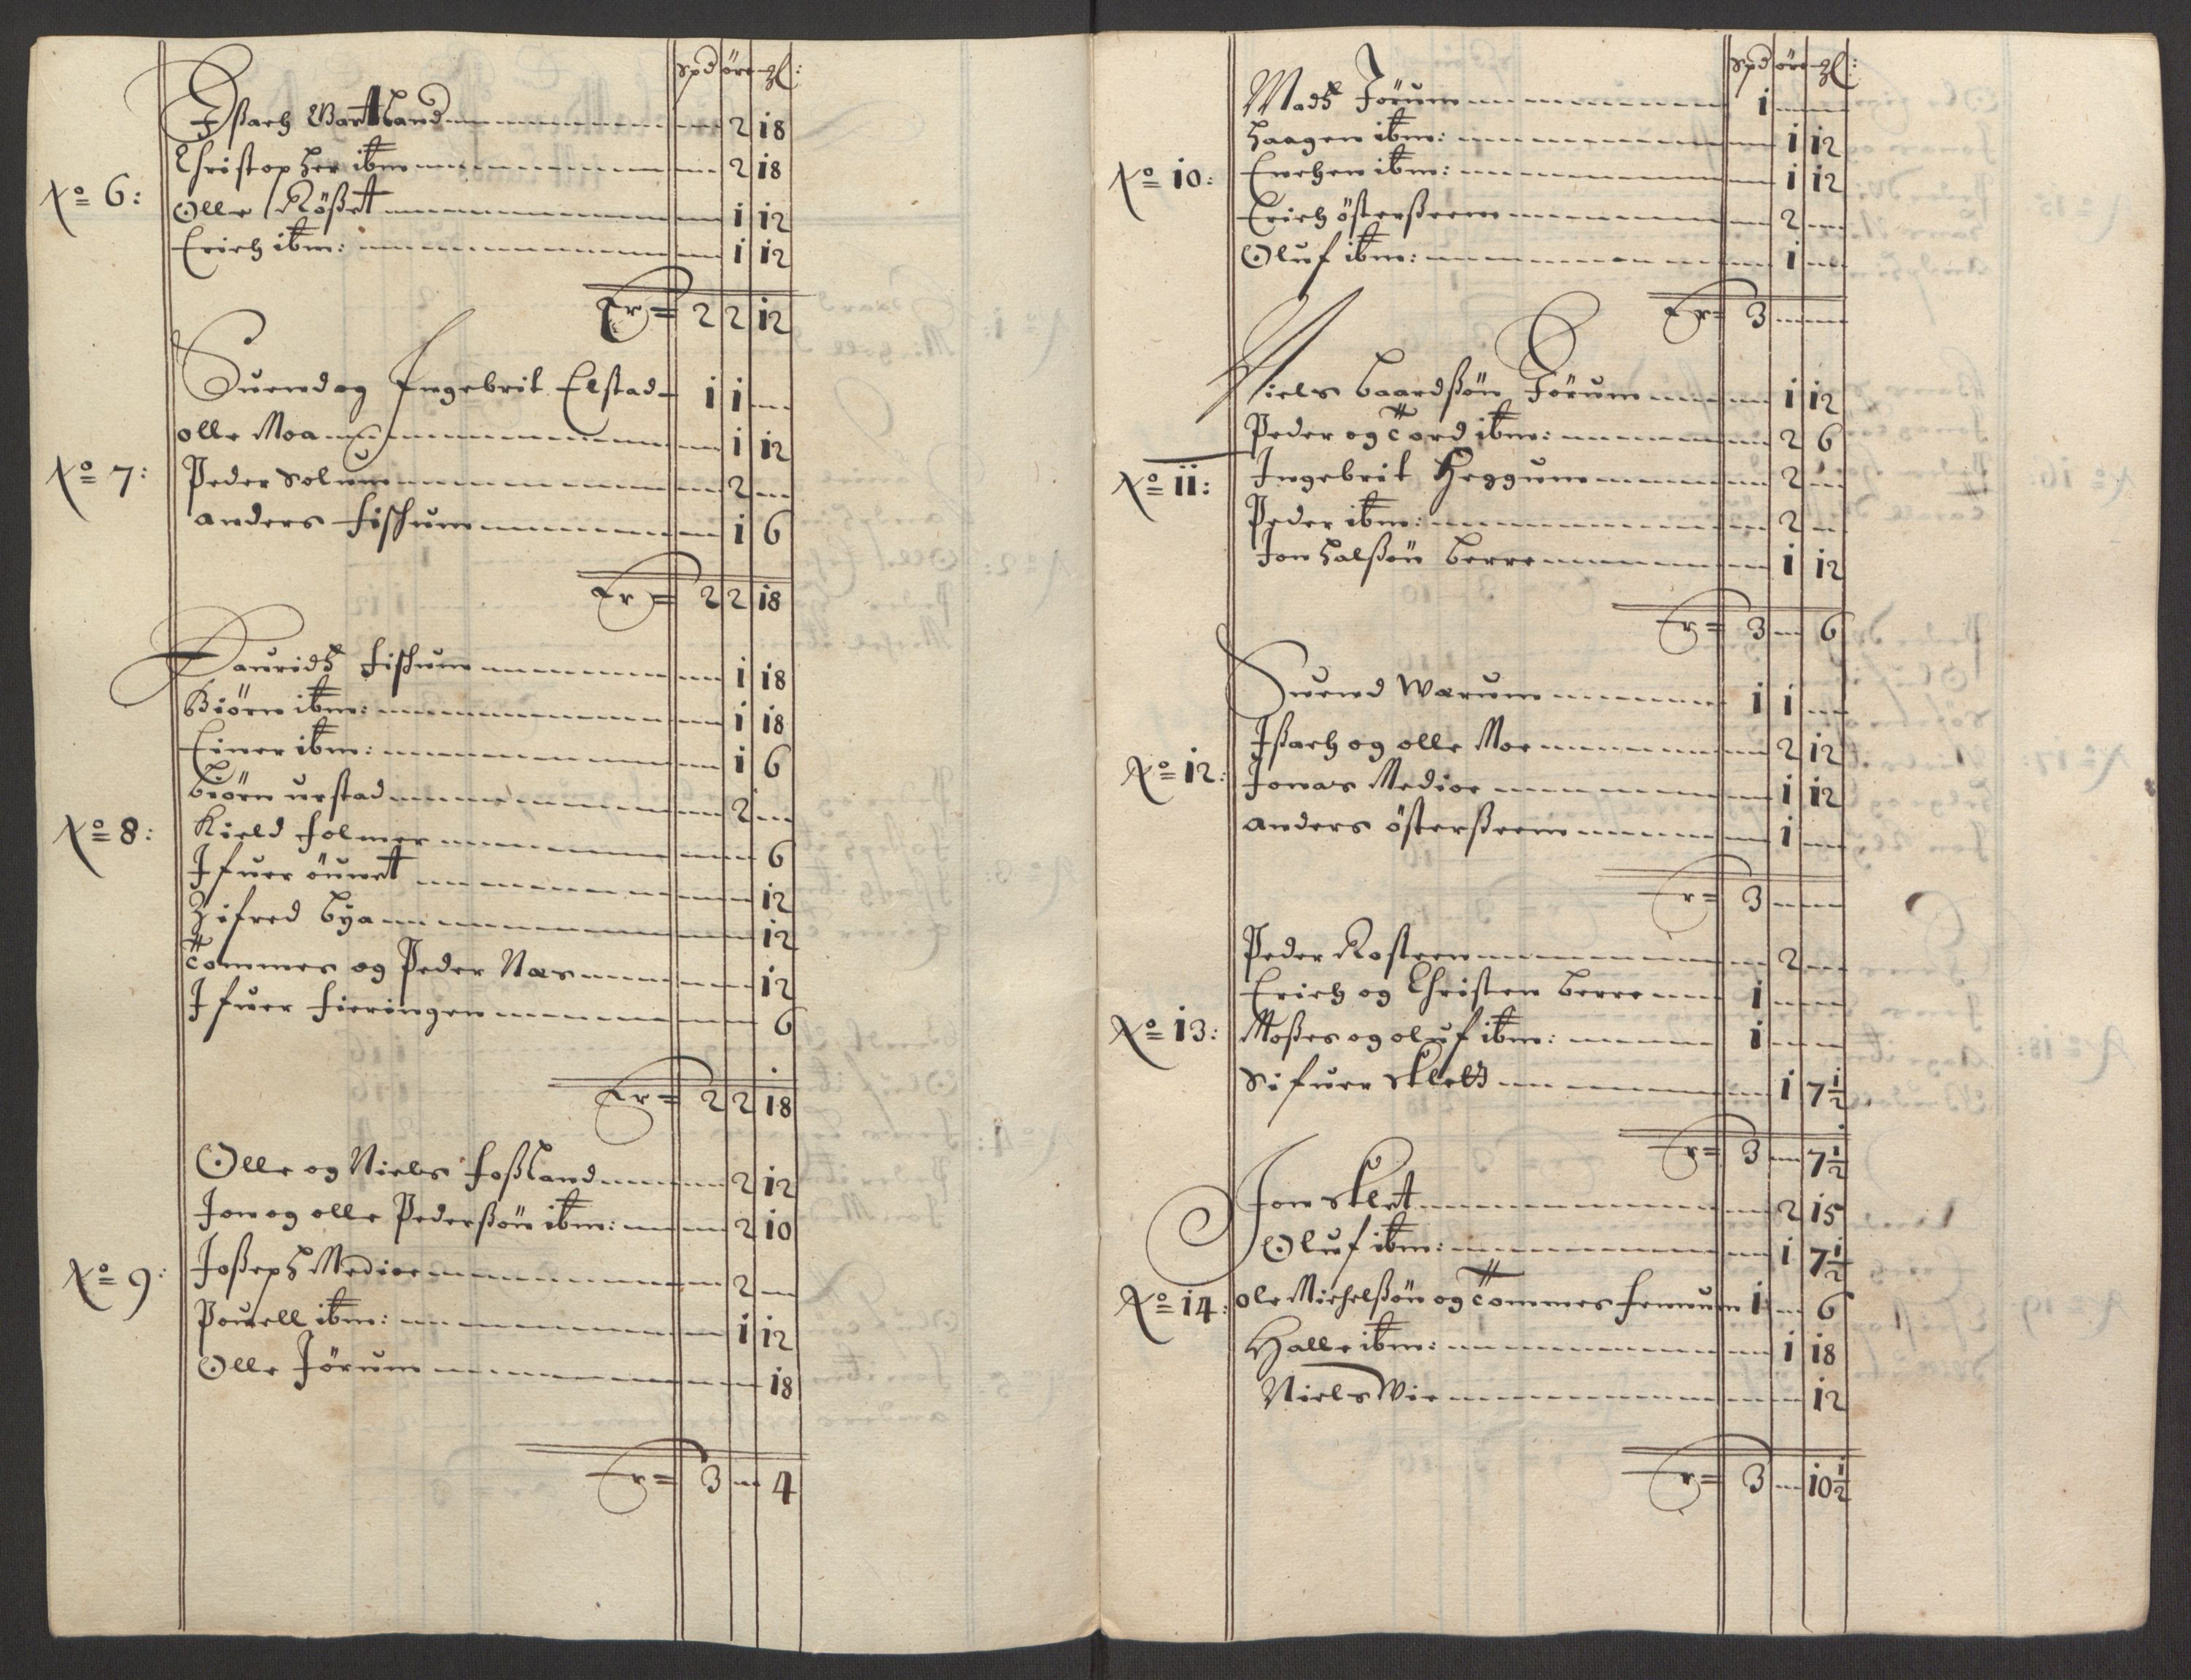 Spd öre ₰:
Jßach Bartland 2 18
Christopher ibm 2 18
No 6:
Olle Rößet 1 12
Erich ibm: 1 12
Er = 2 2 12
Suend og Ingebrit Elstad 1 1
olle Moa 1 12
No 7:
Peder Solum 2
anders Fischum 1 6
Er = 2 2 18
Lauridtz Fischum 1 18
Biörn ibm: 1 18
Einer ibm: 1 6
Biörn urstad 2
No 8:
Kield Folmer 6
Ifuer öuuet 12
Zifred Bÿa 12
Tommes og Peder Næs 12
Ifuer Fieringen 6
Er = 2 2 18
Olle og Niels Foßland 2 12
Jon og olle Pederßön ibm: 2 10
No 9:
Joßeph Medioe 2
Pouell ibm: 1 12
Olle Jörum 18
Er = 3 4
Spd öre ₰:
Madtz Jörum 1
Haagen ibm: 1 12
No 10:
Enchen ibm: 1 12
Erich österßeem 2
Oluf ibm: 1
Er = 3
Niels Baardßön Jörum 1 12
Peder og Tord ibm: 2 6
No 11:
Ingebrit Heggum 2
Peder ibm: 2
Jon Halßön Berre 1 12
Er = 3 6
Suend Wærum 1 1
Jßach og olle Moe 2 12
No 12:
Jonas Medioe 1 12
anders österßeem 1
Er = 3
Peder Rosteen 2
Erich og Christen Berre 1
No 13:
Moßes og oluf ibm: 1
Sifuer Sklett 1 7½
Er = 3 7½
Jon Sklet 2 15
Oluf ibm: 1 7½
No 14:
ole Michelßön og Tommes Femum 1 6
Halle ibm: 1 18
Niels Wie 12
Er = 3 10½